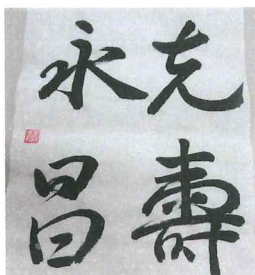 克壽
永昌